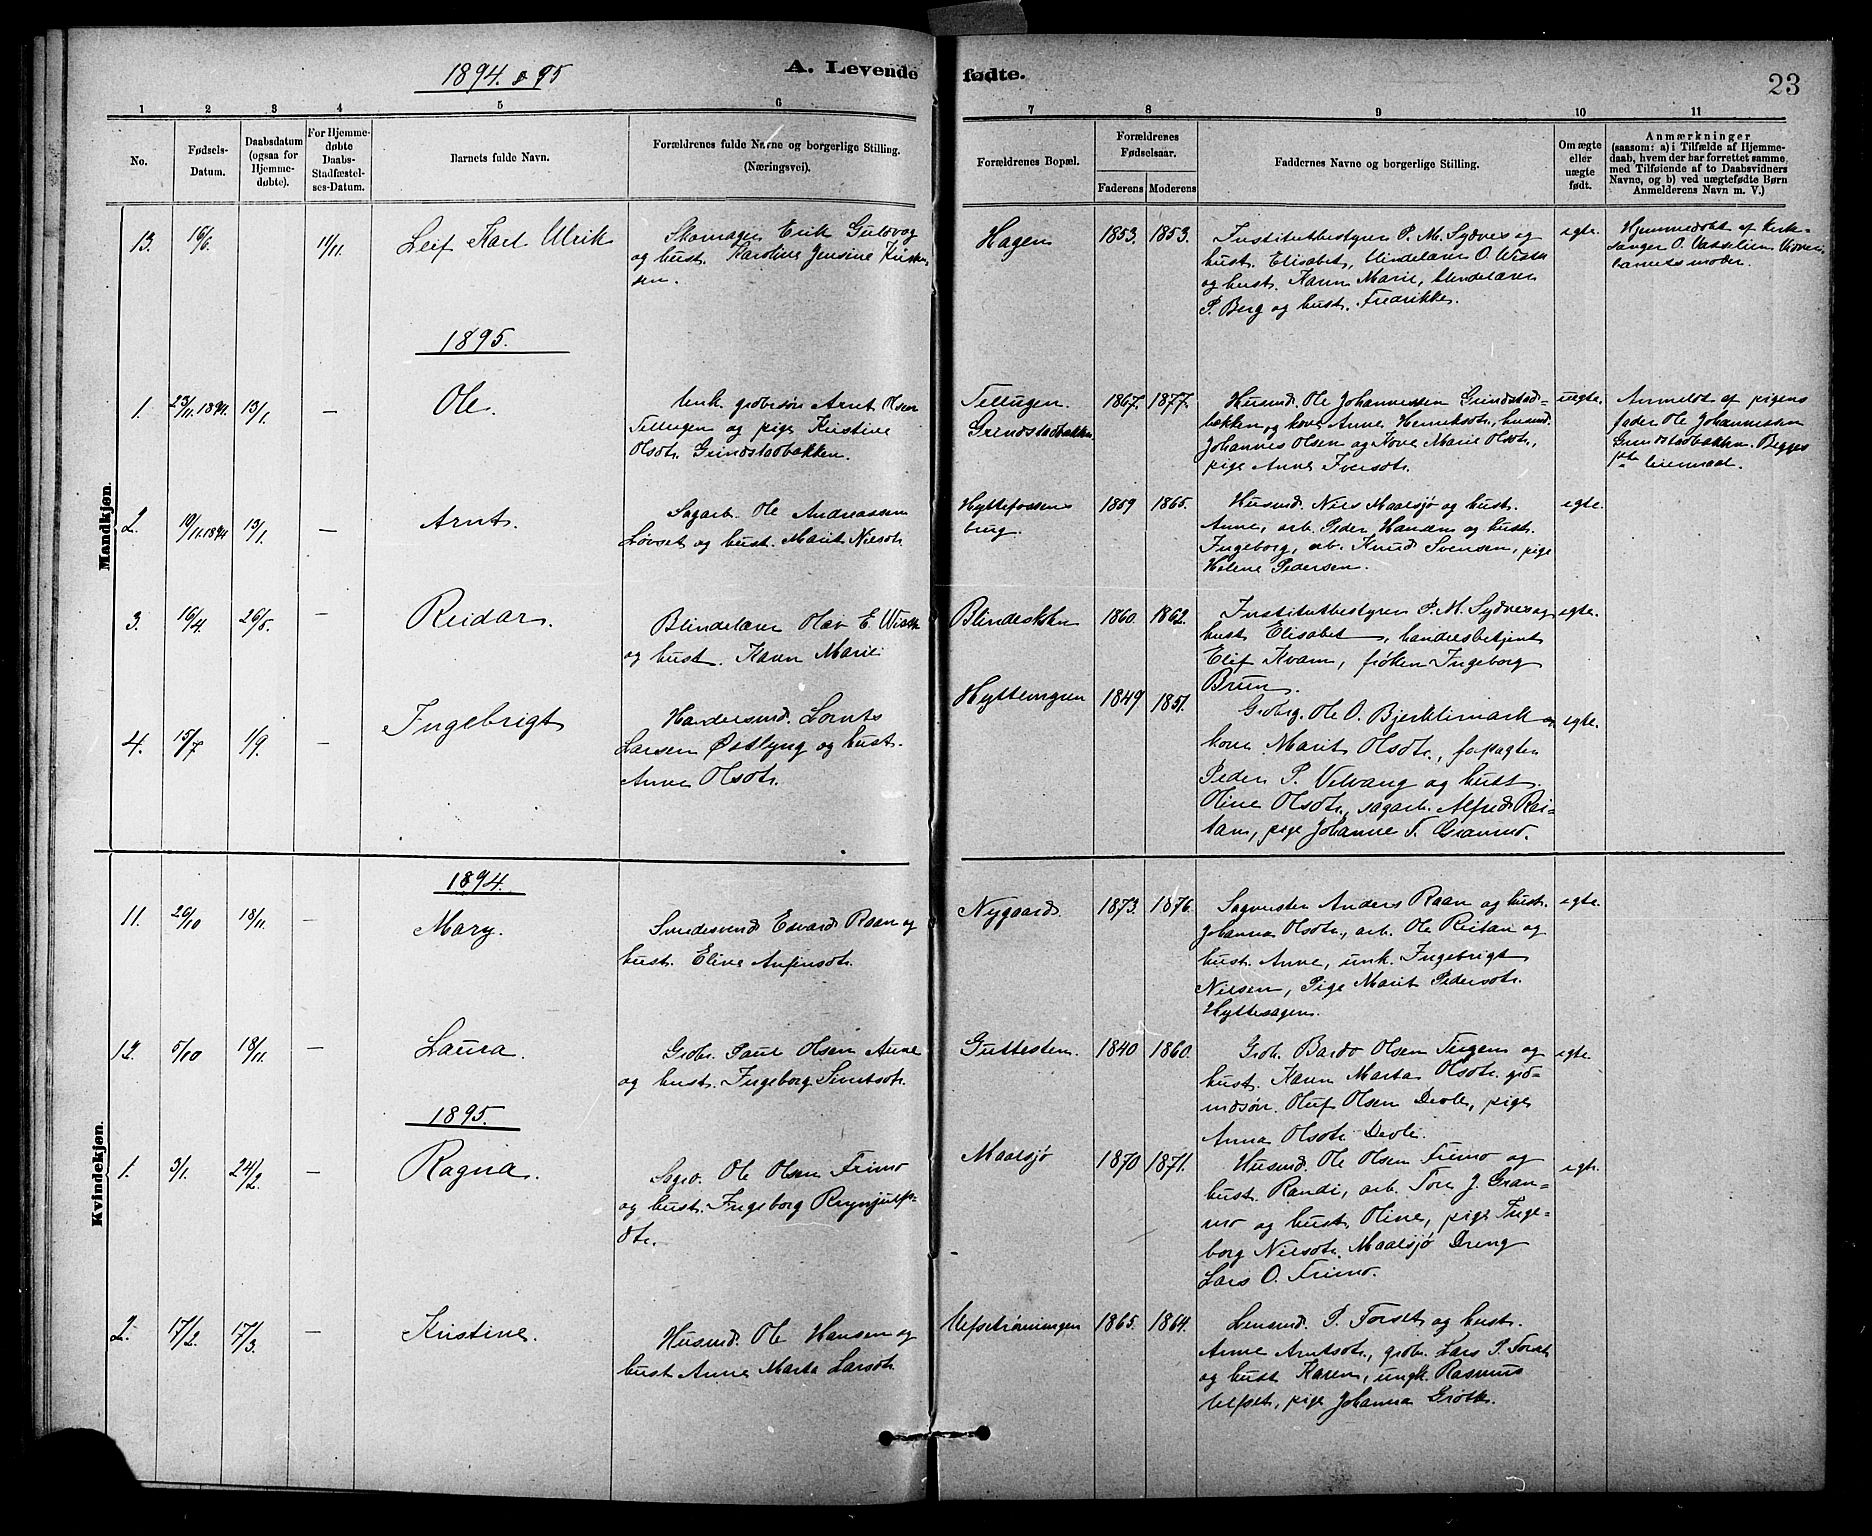 1894 & 95
A. Levende
fødte.
23
1 2 3 4 5 6 7 8 9 10 11
No.
Fødsels-
Datum.
Daabsdatum
(ogsaa for
Hjemme-
døbte).
For Hjemme-
døbte
Daabs-
Stadfæstel-
ses-Datum.
Barnets fulde Navn.
Forældrenes fulde Navne og borgerlige Stilling.
(Næringsvei).
Forældrenes Bopæl.
Forældrenes
Fødselsaar.
Faderens Moderens
Faddernes Navne og borgerlige Stilling.
Om ægte
eller
uægte
født.
Anmærkninger
(saasom: a) i Tilfælde af Hjemme-
daab, hvem der har forrettet samme,
med Tilføiende af to Daabsvidners
Navne, og b) ved uægtefødte Børn
Anmelderens Navn m. V.)
Mandkjøn.
13. 16/6. 11/11. Leif Karl Ulrik
Skomager Erik Gulsvog
og hust. Karoline Jensine Kristen-
sen.
Hagen 1853. 1853.
Institutbestyrer P. M. Sydvesog
hust. Elisabet, blindelærer O. Wisth
og hust. Karen Marie, blindelærer
P. Berg og hust. Fredrikke.
egte.
Hjemmedøbt af Kirke-
sanger O. Vasselien
barnets moder.
1895.
1. 23/11. 1894. 13/1. — Ole.
Unk. grdbrsøn Arnt Olsen
Tellugen og pige Kristine
Olsdtr. Grindstadbakken.
Tellugen.
Grindstadbakken
1867. 1877.
Husmd. Ole Johannessen Grindstad-
bakken og kone Anne Henriksdtr., husmd.
Johannes Olsen og kone Marie Olsdtr.,
pige Anne Iversdtr.
uegte.
Anmeldt af pigens
fader Ole Johannessen
Grindstadbakken. Begges
1ste leiermaal.
2. 19/11. 1894 13/1. — Arnt.
Sagarb. Ole Andreassen
Løvset og hust. Marit Nilsdtr.
Hyttefossens
brug.
1859 1865.
Husmd. Niels Maalsjø og hust.
Anne, arb. Peder Hansen og hust.
Ingeborg, arb. Knud Svensen, pige
Helene Pedersen.
egte.
3. 16/4. 26/5. — Reidar.
Blindelærer Olav E. Wisth
og hust. Karen Marie.
1860. 1862.
Institutbestyrer P. M. Sydvesog
hust. Elisabet, handelsbetjent
Elif Kvam, frøken Ingeborg
Brun.
egte.
4. 15/7 1/9. — Ingebrigt
Handelsmd. Lornts
Larsen Østlyng og hust.
Anne Olsdtr.
Hyttevngen 1849 1851.
Grdbrg. Ole O. Bjerklimark og
kone Marit Olsdtr., forpagter
Peder P. Velvang og hust.
Oline Olsdtr., sagarb. Alfred Rei-
tan, pige Johanne T. Granmo.
egte.
Kvindekjøn.
1894.
11. 26/10 18/11. — Mary.
Svendesvend Edvard Raan og
hust. Eline Anfinsdtr.
Nygaard. 1873. 1876.
Sagmester Anders Raan og hust.
Johanna Olsdtr., arb. Ole Reitan og
hust. Anne, unk. Ingebrigt
Nilsen, Pige Marit Pedersdtr.
Hyttesagen.
egte.
12. 5/10 18/11. — Laura.
Grdbr. Paul Olsen Aune
og hust. Ingeborg Sivertsdtr.
Guttesten. 1840 1860.
Grdb. Bardo Olsen Tugen og
hust. Karen Marta Olsdtr. grd-
mdsøn. Oluf Olsen Devle, pige
Anna Olsdtr. Devle.
egte.
1895.
1. 3/1. 24/2. — Ragna.
Sagv. Ole Olsen Frimo
og hust. Ingeborg Brynjulfs-
dtr.
Maalsjø 1870 1871.
Husmd. Ole Olsen Frimo og
hust. Randi, arb. Tore J. Gran-
mo og hust. Oline, pige Inge-
borg Nilsdtr. Maalsjø Dreng
Lars O. Frimo.
egte.
2. 17/2. 17/3. — Kristine.
Husmd. Ole Hansen og
hust. Anne Marta Larsdtr.
Ufsetrønningen 1865. 1864.
Lensmd. P. Forset og hust.
Anne Arntsdtr., grdbr. Lars P. Forset
og hust. Karen, ungk. Rasmus
Ulfset, pige Johanna Grøtte.